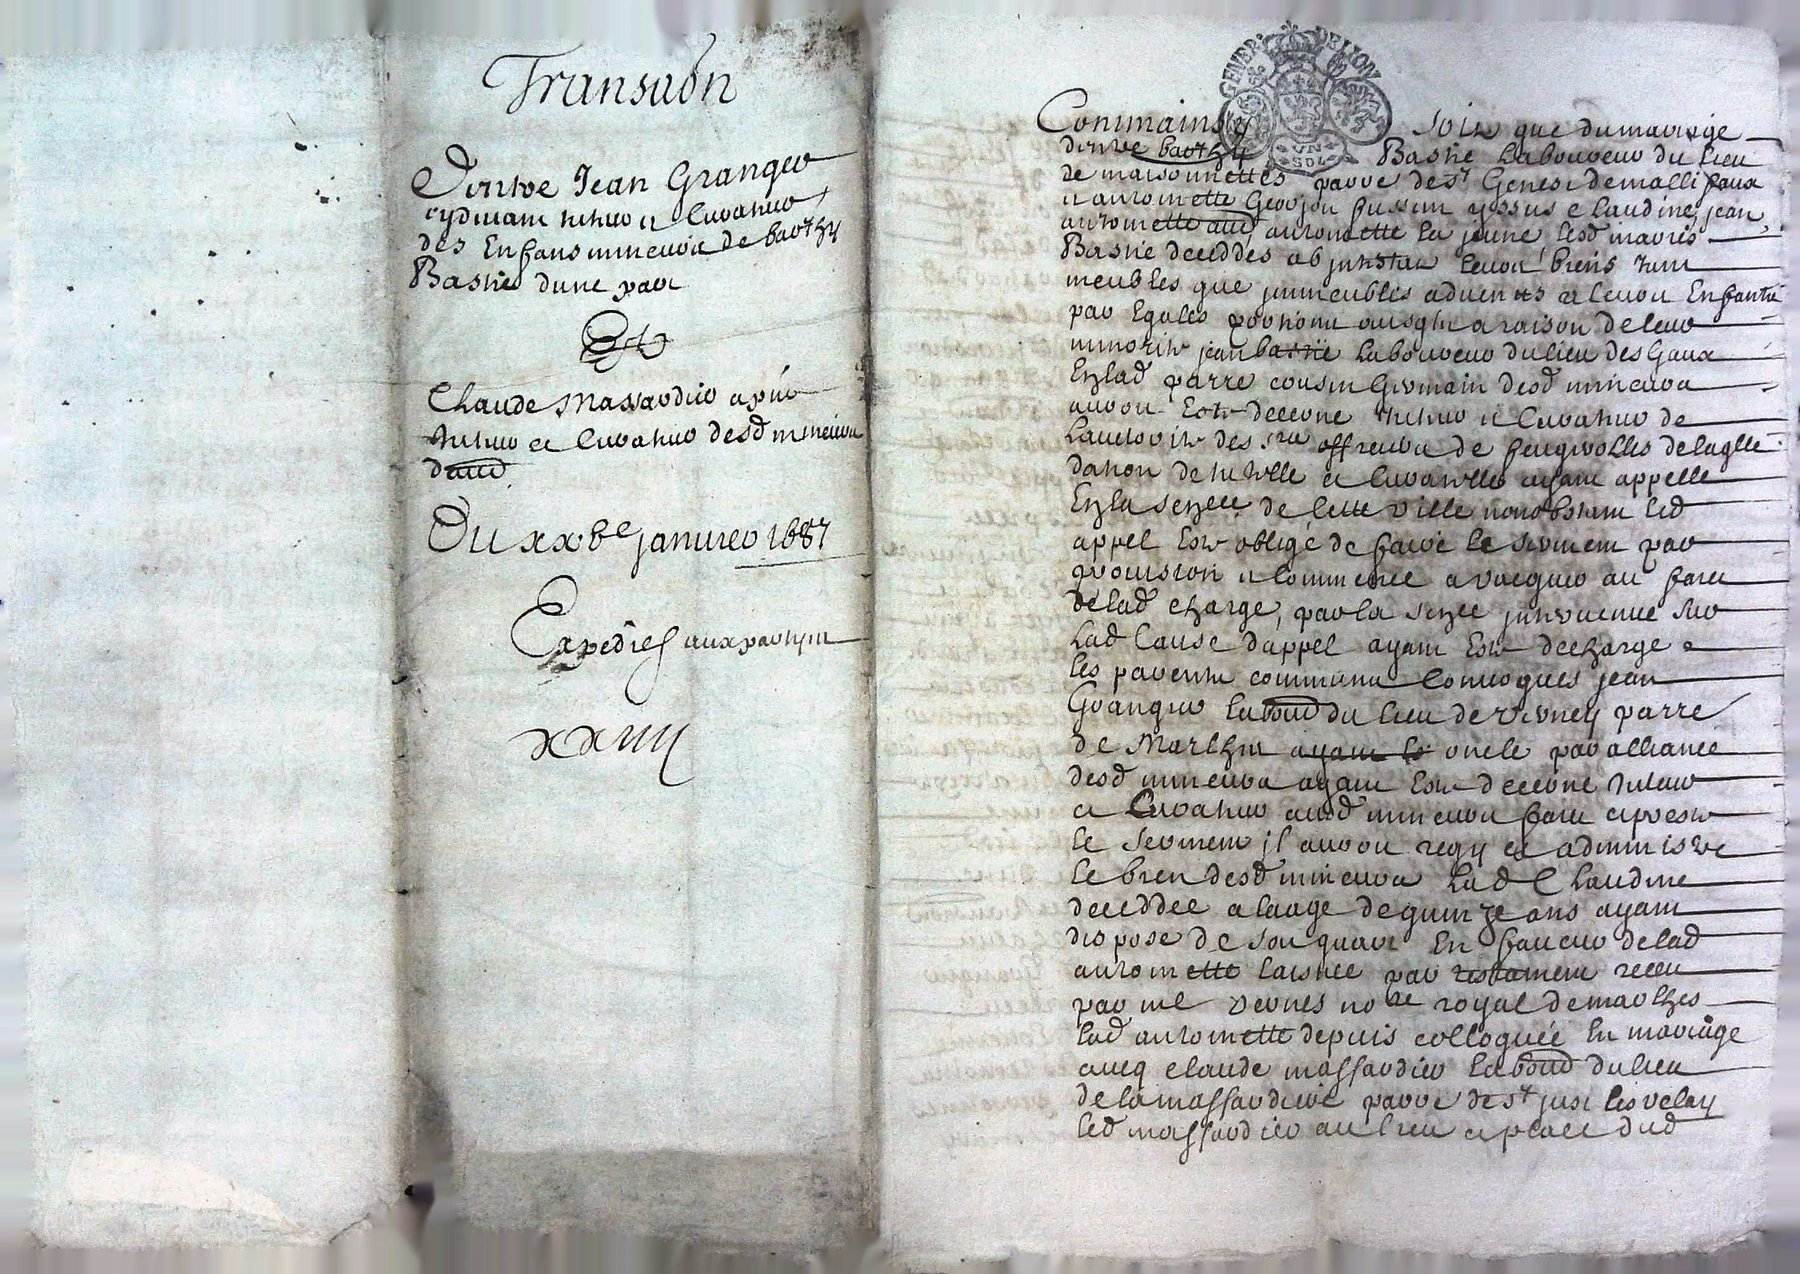 Transaôn
Entre Jean Granger
cydevant tuteur et curateur
des Enfans mineurs de barthy
Bastie dune part
Et
Claude Massardier apnt
tuteur et curateur desd mineurs
daud
Du xxbe janvier 1687
Expediés aux partyes
xxiiii
GENER DE LION
UN
SOL
Comme ainsy soit que du mariage
dentre barthy Bastie laboureur du lieu
de maisonnettes parre de st Genest de mallifaux
et anthoinette Georjon fussent yssus claudine, jean
anthoinette et anthoinette la jeune, lesd mariés
Bastie deceddés ab intestat leurs biens tant
meubles que immeubles advenus a leurs Enfants
par Egales portions ausqls a raison de leur
minorité jean bastie laboureur du lieu des Gaux
En lad parre cousin Germain desd mineurs
auroit Este decerné tuteur et curateur de
lauctorité des srs officiers de feugerolles de laqlle
dation de tutelle et curatelle ayant appellé
En la senee de cette ville nonobstant led
appel Este obligé de faire le serment par
provision et commencé a vacquer au faict
de lad charge, par la senee intervenue sur
lad cause dappel ayant Esté dechargé et
les parents communs convoqués jean
Granger labour du lieu de verney parre
de Marlhes oncle par alliance
desd mineurs ayant Esté decerné tuteur
et Curateur ausd mineurs faict et presté
le serment il auroit regy et administré
le bien desd mineurs lad Claudine
deceddée a laage de quinze ans ayant
disposé de son quart En faveur de lad
anthoinette laisnée par testament receu
par me vernes nore royal de marlhes
lad anthoinette depuis colloquée En mariage
avecq claude massardier labour du lieu
de la massardiere parre de st just les velay
led massardier au lieu et place dud